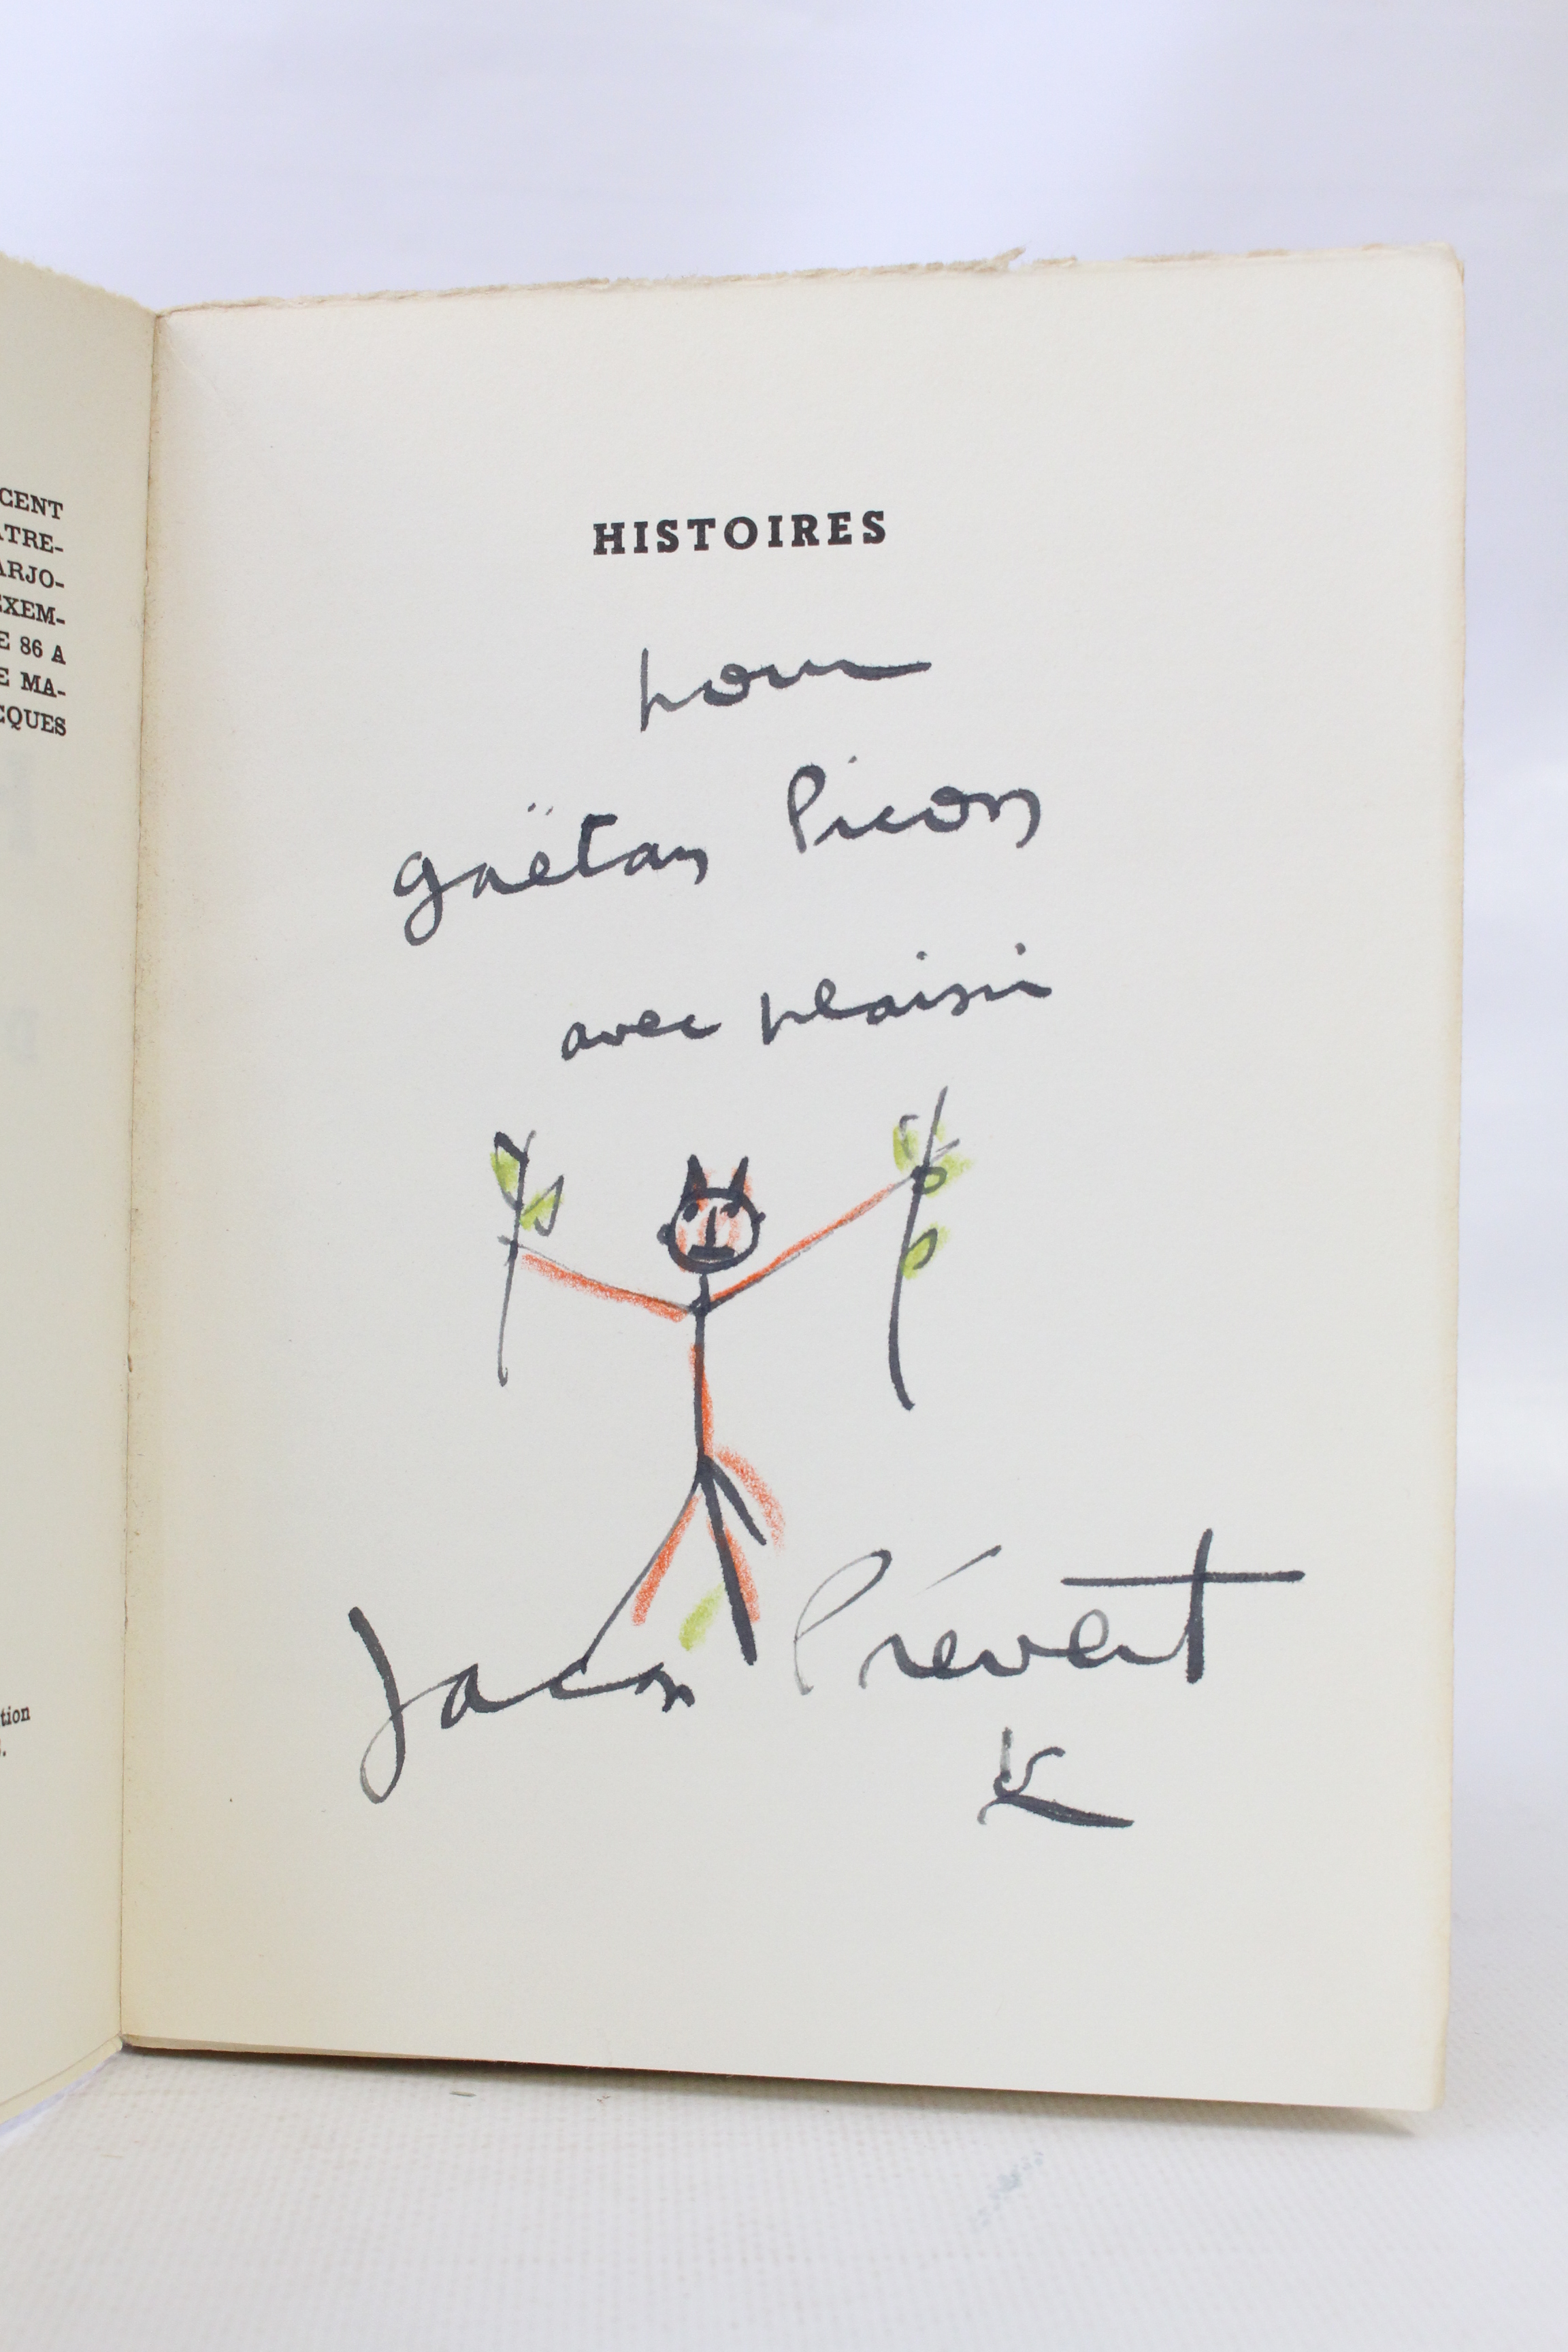 CENT
ATRE-
ARJO-
EXEM-
E 86 A
E MA-
CQUES
tion
HISTOIRES
pour
Gaëtan Picon
avec plaisir
Jacques Prévert